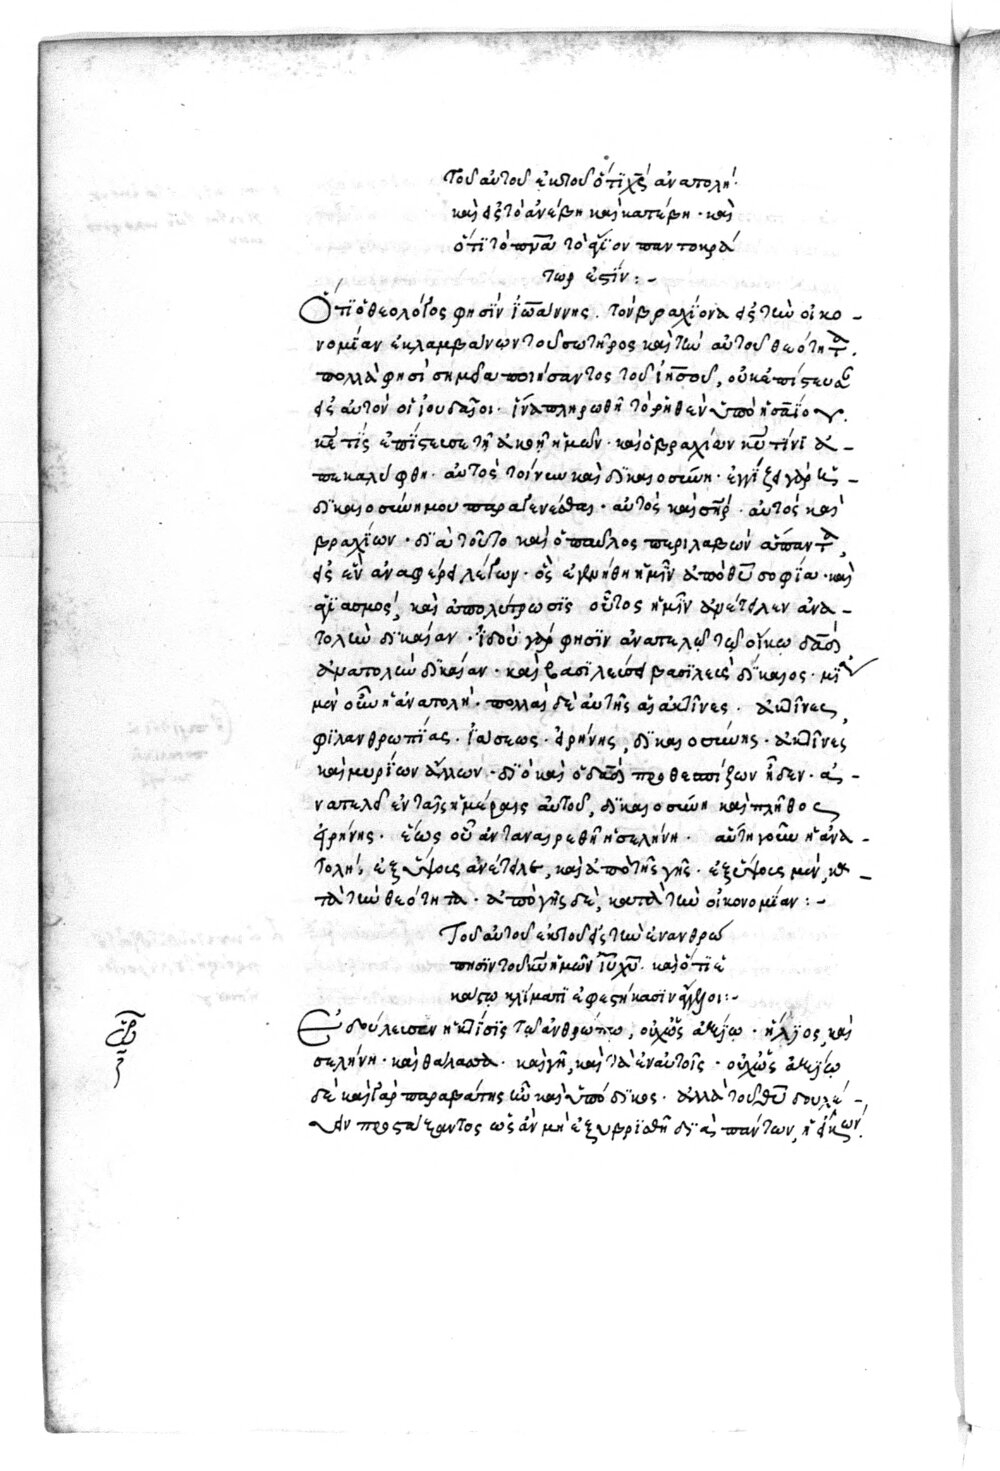 Τοῦ αὐτοῦ ἐκ τοῦ ὅτι χς ἀνατολή·
καὶ εἰς τὸ ἀνέβη καὶ κατέβη· καὶ
ὅτι τὸ πνα τὸ ἅγιον παντοκρά
τωρ ἐστίν :-
Ὅτι ὁ θεολόγος φησὶν ἰωάννης. τὸν βραχίονα εἰς τὴν οἰκο-
νομίαν ἐκλαμβάνων τοῦ σωτῆρος καὶ τὴν αὐτοῦ θεότητα.
πολλὰ φησὶ σημεῖα ποιήσαντος τοῦ ἰησοῦ, οὐκ ἐπίστευσαν
εἰς αὐτὸν οἱ ἰουδαῖοι· ἵνα πληρωθῆ τὸ ῥηθὲν ὑπὸ ἡσαΐου.
κε τίς ἐπίστευσε τῆ ἀκοῆ ἡμῶν· καὶ ὁ βραχίων κυ τίνι ἀ-
πεκαλύφθη· αὐτὸς τοίνυν καὶ δικαιοσύνη· ἐγγίζει γὰρ
δικαιοσύνη μου παραγενέσθαι· αὐτὸς καὶ σηρ· αὐτὸς καὶ
βραχίων· διὰ τοῦτο καὶ ὁ παῦλος περιλαβὼν ἅπαντα,
εἰς ἓν ἀναφέρει λέγων· ὃς ἐγενήθη ἡμῖν ἀπὸ θυ σοφία· καὶ
ἁγιασμός, καὶ ἀπολύτρωσις οὗτος ἡμῖν ἀνέτειλεν ἀνα-
τολὴν δικαίαν· ἰδοὺ γάρ φησιν ἀνατελῶ τῶ οἴκω δαδ
ἀνατολὴν δικαίαν· καὶ βασιλεύσει βασιλεὺς δίκαιος· μί
μὲν οὖν ἡ ἀνατολή· πολλαὶ δὲ αὐτῆς αἱ ἀκτῖνες· ἀκτῖνες,
φιλανθρωπίας· ἰάσεως· εἰρήνης, δικαιοσύνης· ἀκτῖνες
καὶ μυρίων ἄλλων· διὸ καὶ ὁ δαδ προθεσπίζων ἦδεν· ἀ-
νατελεῖ ἐν ταῖς ἡμέραις αὐτοῦ, δικαιοσύνη καὶ πλῆθος
εἰρήνης· ἕως οὗ ἀνταναιρεθῆ ἡ σελήνη· αὕτη γοῦν ἡ ἀνα-
τολή, ἐξ ὕψους ἀνέτειλε, καὶ ἀπὸ τῆς γῆς· ἐξ ὕψους μὲν, κα-
τὰ τὴν θεότητα· ἀπὸ γῆς δὲ, κατὰ τὴν οἰκονομίαν :-
Τοῦ αὐτοῦ ἐκ τοῦ εἰς τὴν ἐνανθρώ
πησιν τοῦ κυ ἡμῶν ιυ χυ· καὶ ὅτι ἑ
κάστω κλίματι ἐφεστήκασιν ἄγγελοι :-
Ἐδούλευσεν ἡ κτίσις τῶ ἀνθρώπω, οὐχ ὡς ἀξίω· ἥλιος, καὶ
σελήνη· καὶ θάλασσα· καὶ γῆ, καὶ τὰ ἐν αὐτοῖς· οὐχ ὡς ἀξίω
δὲ καὶ γὰρ παραβάτης ἦν καὶ ὑπόδικος· ἀλλὰ τοῦ θυ δουλεύ-
ειν προστάξαντος ὡς ἂν μὴ ἐξυβρισθῆ διὰ πάντων, ἡ εἰκών.